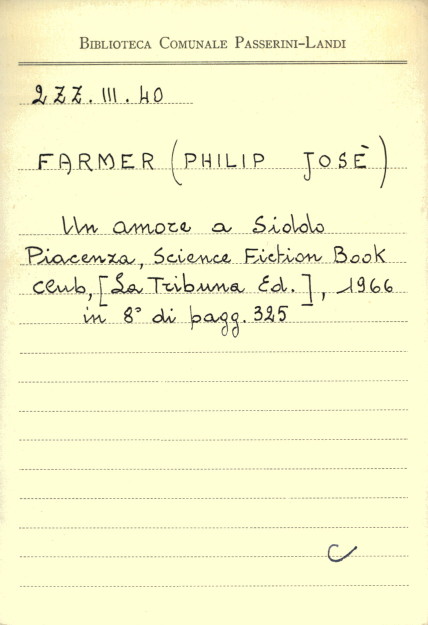 BIBLIOTECA COMUNALE PASSERINI-LANDI
2ZZ.III.40
FARMER (PHILIP JOSÈ)
Un amore a Siddo
Piacenza, Science Fiction Book
Club, [La Tribuna Ed.], 1966
in 8° di pagg. 325
C